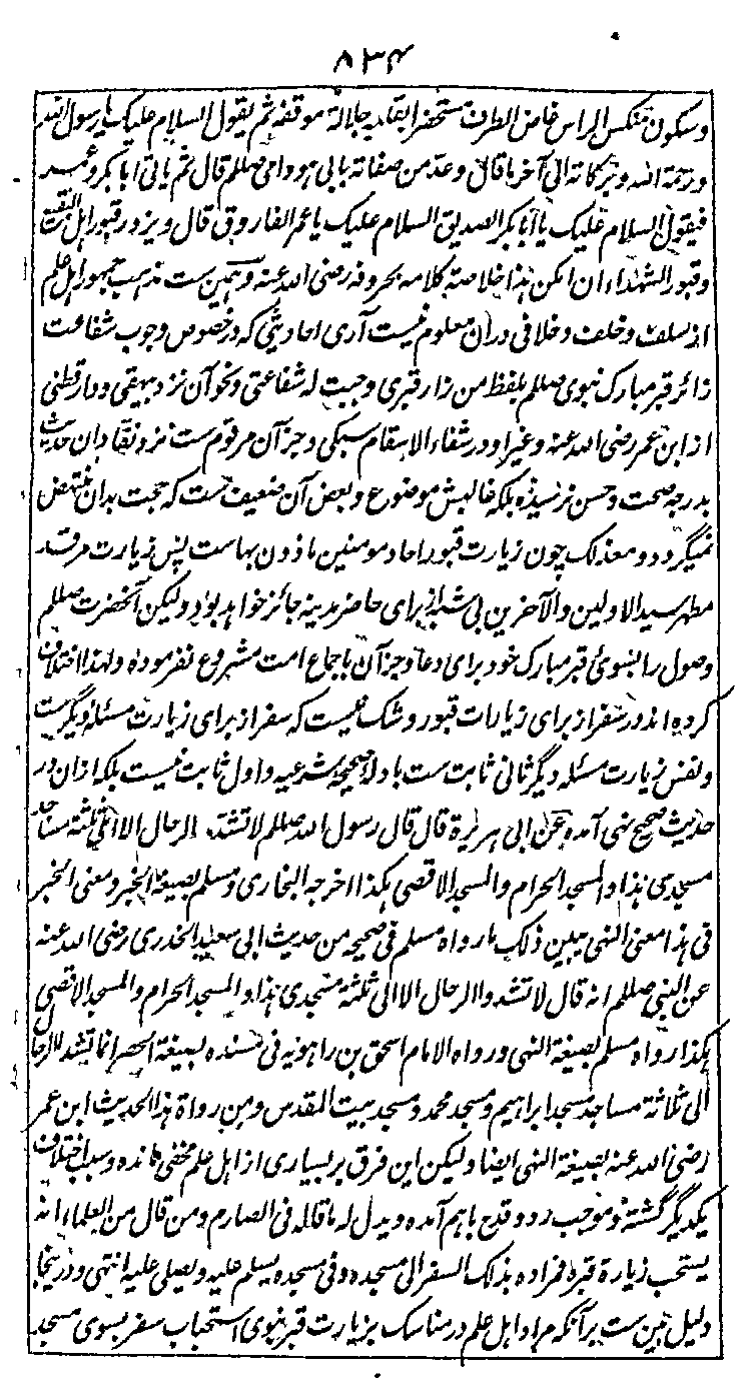 ۸۳۴
وسکون منکس الراس غاض الطرف مستحضرا بقلبه جلالة موقفه ثم یقول السلام علیک یا رسول الله
ورحمة الله وبرکاته الی آخر ما قال وعد من صفاته بابی هو وامی صللم قال ثم یاتی ابا بکر وعمر
فیقول السلام علیک یا ابا بکر الصدیق السلام علیک یا عمر الفاروق قال ویزور قبور اهل البقیع
وقبور الشهداء ان امکن هذا خلاصة کلامه بحروفه رضی الله عنه وهمین ست مذهب جمهور اهل علم
از سلف وخلف وخلافی دران معلوم نیست آری احادیثی که در خصوص وجوب شفاعت
زائر قبر مبارک نبوی صللم بلفظ من زار قبری وجبت له شفاعتی ونحو آن نزد بیهقی ودارقطنی
از ابن عمر رضی الله عنه وغیر او در شفاء الاسقام سبکی وجز آن مرقوم ست نزد نقادان حدیث
بدرجه صحت وحسن نرسیده بلکه غالبش موضوع وبعض آن ضعیف ست که حجت بدان منتهض
نمیگردد ومعذلک چون زیارت قبور احاد مومنین ماذون بهاست پس زیارت مرقد
مطهر سید الاولین والآخرین بی شبه از برای حاضر مدینه جائز خواهد بود ولیکن آنحضرت صللم
وصول را بسوی قبر مبارک خود برای دعا وجز آن باجماع امت مشروع نفرموده ولهذا اختلاف
کرده اند در سفر از برای زیارات قبور وشک نیست که سفر از برای زیارت مسئله دیگرست
ونفس زیارت مسئله دیگر ثانی ثابت ست بادله صحیحه شرعیه واول ثابت نیست بلکه ازان در
حدیث صحیح نهی آمده عن ابی هریرة قال قال رسول الله صللم لا تشد الرحال الا الی ثلثة مساجد
مسجدی هذا والمسجد الحرام والمسجد الاقصی هکذا اخرجه البخاری ومسلم بصیغة الخبر ومعنی الخبر
فی هذا معنی النهی یبین ذلک ما رواه مسلم فی صحیحه من حدیث ابی سعید الخدری رضی الله عنه
عن النبی صللم انه قال لا تشدوا الرحال الا الی ثلثة مسجدی هذا والمسجد الحرام والمسجد الاقصی
هکذا رواه مسلم بصیغة النهی ورواه الامام اسحق بن راهویه فی مسنده بصیغة الحصر انما تشد الرحال
الی ثلاثة مساجد مسجد ابراهیم ومسجد محمد ومسجد بیت المقدس ومن رواة هذا الحدیث ابن عمر
رضی الله عنه بصیغة النهی ایضا ولیکن این فرق بر بسیاری از اهل علم مخفی مانده وسبب اختلاف
یکدیگر گشته وموجب رد وقدح باهم آمده ویدل له ما قاله فی الصارم ومن قال من العلماء انه
یستحب زیارة قبره فمراده بذلک السفر الی مسجده وفی مسجده یسلم علیه ویصلی علیه انتهی ودر اینجا
دلیل بین ست برآنکه مراد اهل علم در مناسک بزیارت قبر نبوی استحباب سفر بسوی مسجد